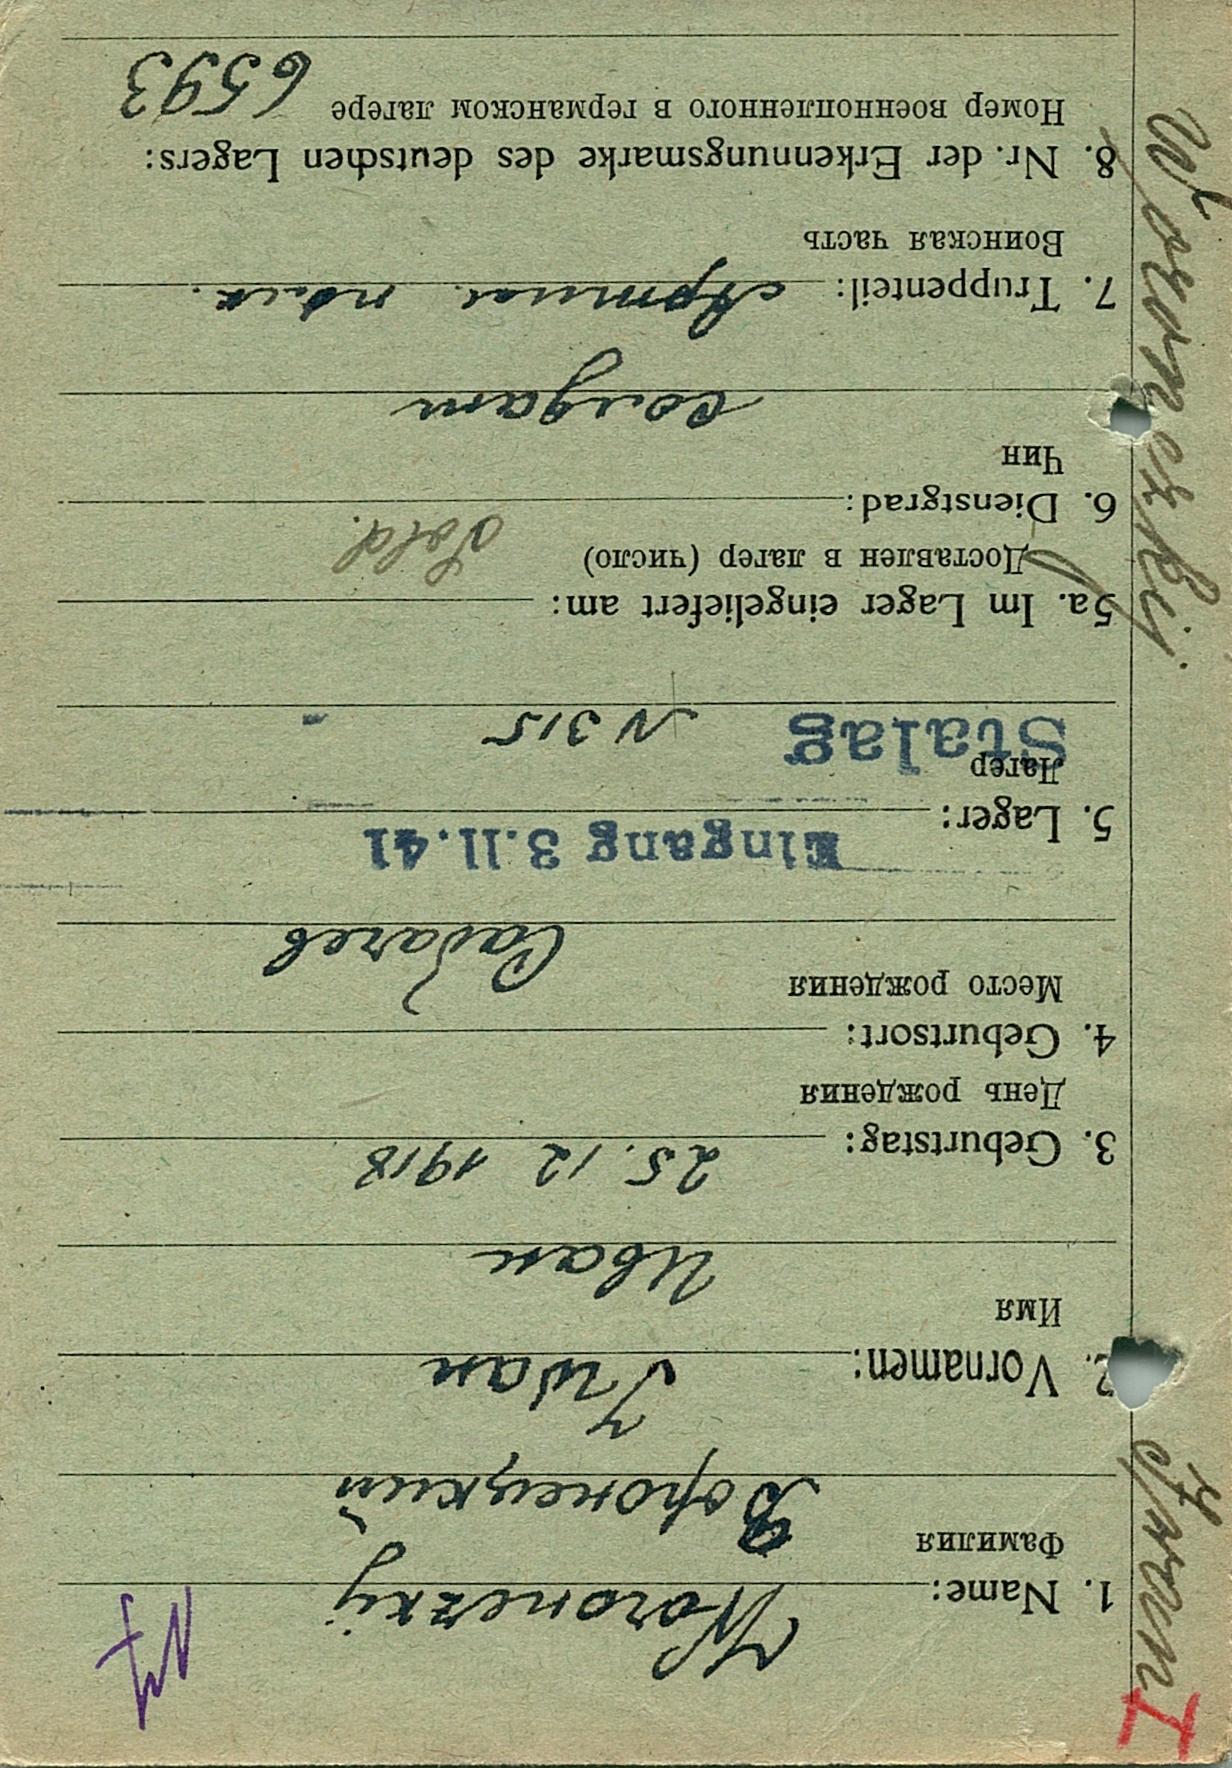 I
Woronezkij Iwan
1. Name: Woronezkij
Фамилия
Воронецкий
2. Vornamen: Iwan
Имя
Иван
3. Geburtstag: 25.12 1918
День рождения
4. Geburtsort:
Место рождения
Eingang 3.11.41
5. Lager:
Лагер
Stalag N 315
5a. Im Lager eingeliefert am:
Доставлен в лагер (число)
Sold.
6. Dienstgrad:
Чин
солдат
7. Truppenteil: Артил. полк.
Воинская часть
8. Nr. der Erkennungsmarke des deutschen Lagers:
Номер военнопленного в германском лагере 6593